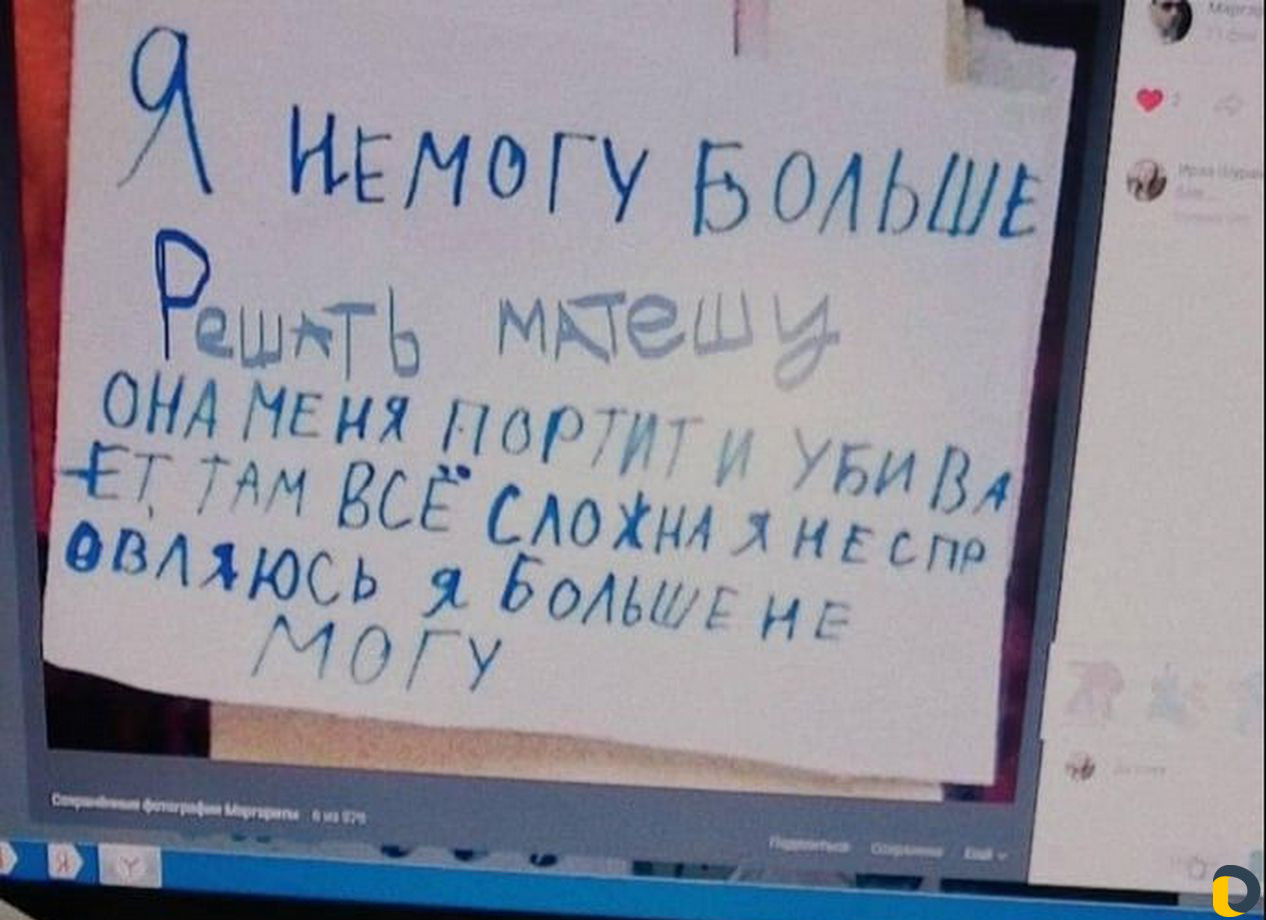 Я НЕМОГУ БОЛЬШЕ
РешАТЬ мАТешу
ОНА МЕНЯ ПОРТИТ И УБИВА
ЕТ ТАМ ВСЁ СЛОЖНА Я НЕСПР
ОВЛЯЮСЬ Я БОЛЬШЕ НЕ
МОГУ
Сохранённые фотографии Маргариты 6 из 976
Поделиться Сохранено Ещё